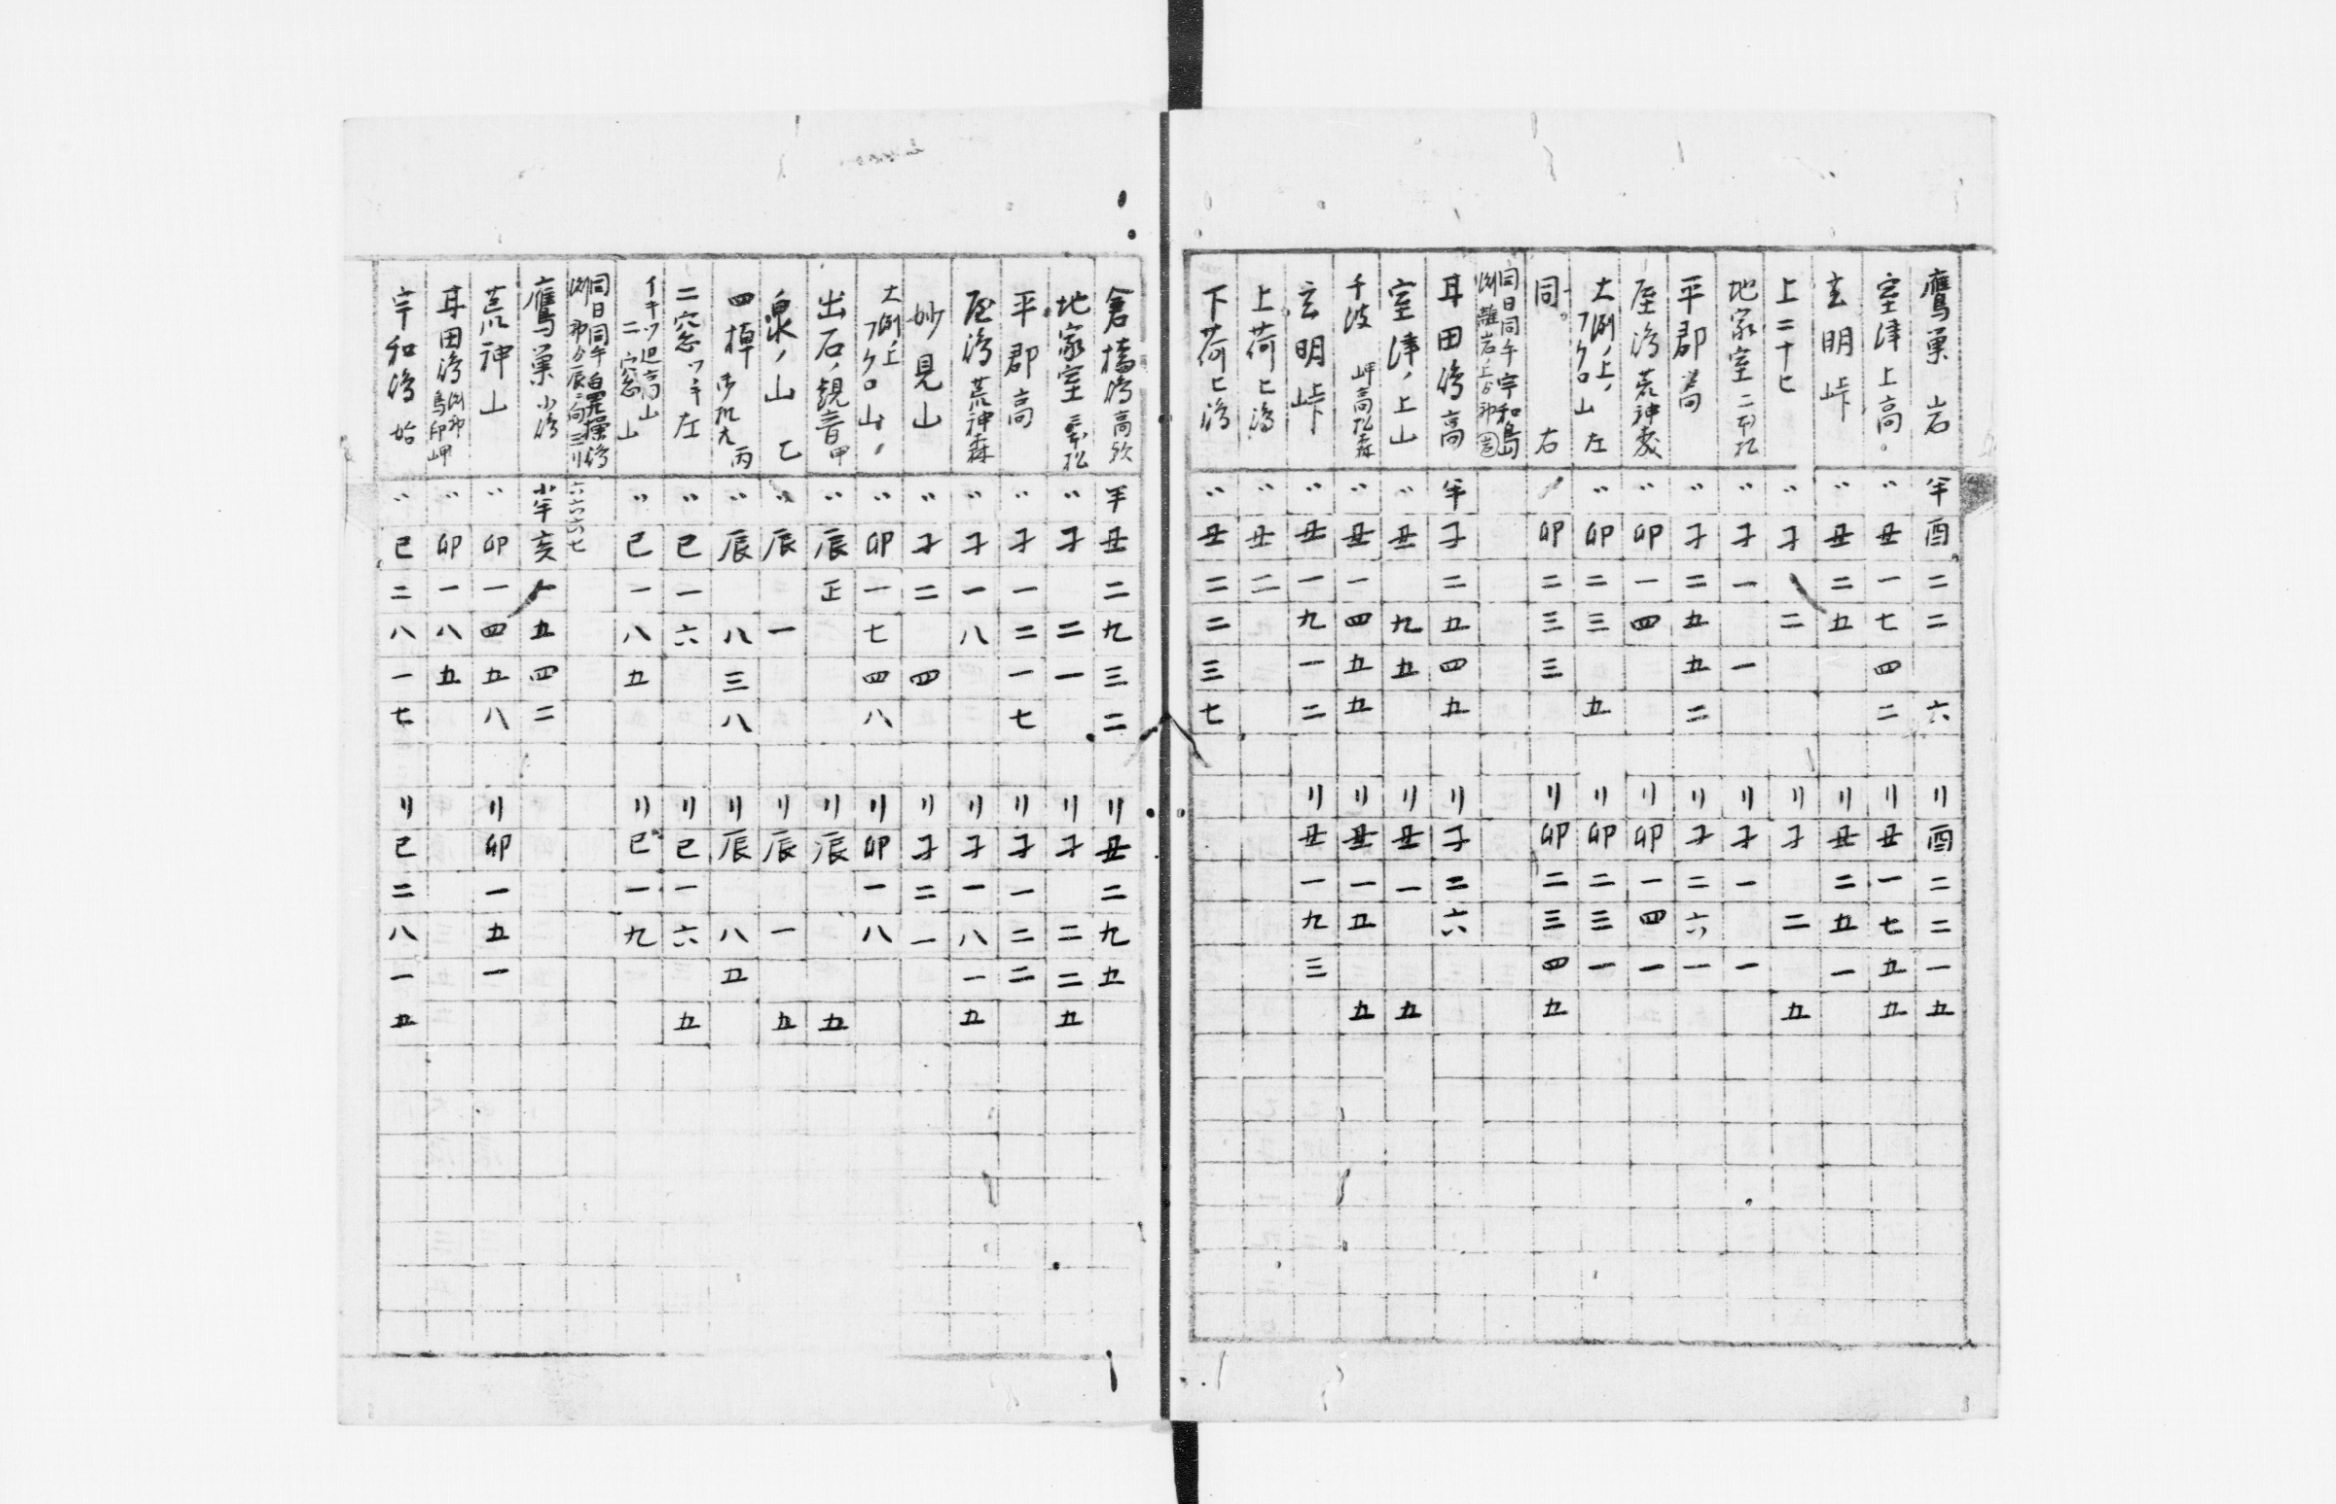 鷹巣 岩 半 酉 二 二 六 リ 酉 二 二 一 五
室津 上高 〃 丑 一 七 四 二 リ 丑 一 七 五 五
玄明峠 〃 丑 二 五 リ 丑 二 五 一
上二十七 〃 子 二 リ 子 二 五
地家室 二本松 〃 子 一 一 リ 子 一 一
平郡 高 〃 子 二 五 五 二 リ 子 二 六 一
荒神 〃 卯 一 四 リ 卯 一 四 一
山 左 〃 卯 二 三 五 リ 卯 二 三 一
同 右 卯 二 三 三 リ 卯 二 三 四 五
同日同午 宇和島
離岩ノ上
耳田 高 半 子 二 五 四 五 リ 子 二 六
室津ノ上山 〃 丑 九 五 リ 丑 一 五
千波 岬高松森 〃 丑 一 四 五 五 リ 丑 一 五 五
玄明峠 〃 丑 一 九 一 二 リ 丑 一 九 三
上荷 〃 丑 二
下荷 〃 丑 二 二 三 七
倉橋 高 半 丑 二 九 三 二 リ 丑 二 九 五
地家室 松 〃 子 二 一 リ 子 二 二 五
平郡 高 〃 子 一 二 一 七 リ 子 一 二 二
荒神森 〃 子 一 八 リ 子 一 八 一 五
妙見山 〃 子 二 四 リ 子 二 一
山 〃 卯 一 七 四 八 リ 卯 一 八
出石ノ観音 甲 〃 辰 正 リ 辰 五
泉ノ山 乙 〃 辰 一 リ 辰 一 五
四 丙 〃 辰 八 三 八 リ 辰 八 五
二窓 左 〃 巳 一 六 リ 巳 一 六 五
高山 二窓山 〃 巳 一 八 五 リ 巳 一 九
同日同午
六六六七
鷹巣 小 半 亥 一 五 四 二
荒神山 〃 卯 一 四 五 八 リ 卯 一 五 一
耳田 〃 卯 一 八 五
宇和 始 〃 巳 二 八 一 七 リ 巳 二 八 一 五